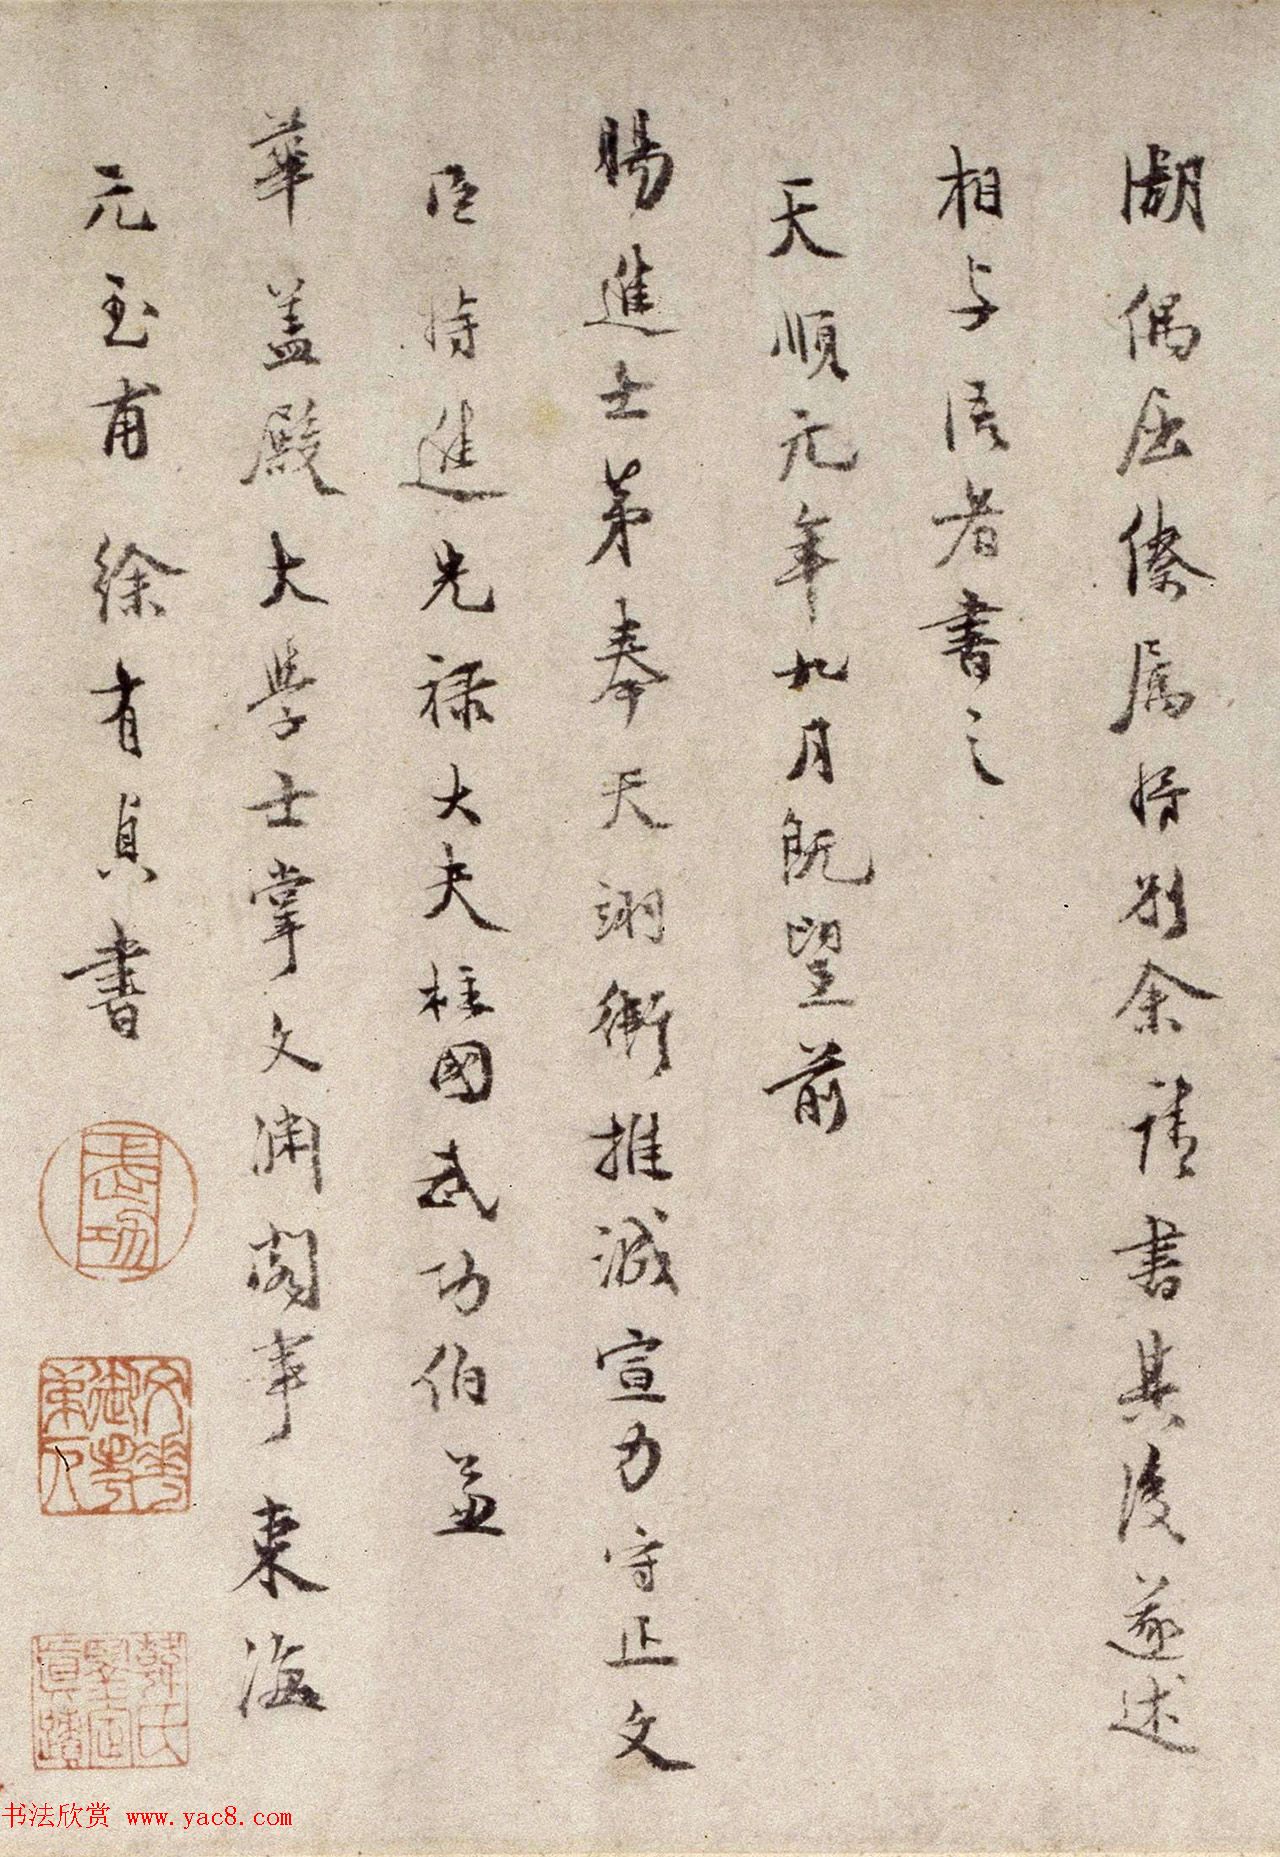 湖偶在僚屬將別余請書其後遂述
相與語者書之
天順元年九月既望前
賜進士第奉天翊衛推誠宣力守正文
臣特進光祿大夫柱國武功伯兼
華蓋殿大學士掌文淵閣事東海
元玉甫徐有貞書
武功
文華御考第一
韓氏鑒定真蹟
书法欣赏 www.yac8.com